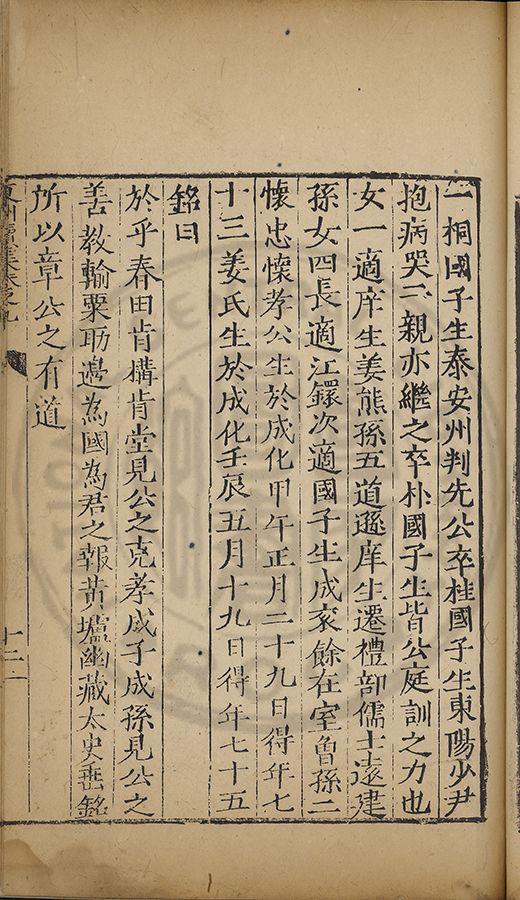 一桐國子生泰安州判先公卒桂國子生東陽少尹
抱病哭二親亦繼之卒朴國子生皆公庭訓之力也
女一適庠生姜熊孫五道遜庠生遷禮部儒士遠建
孫女四長適江鐶次適國子生成袞餘在室曾孫二
懷忠懷孝公生於成化甲午正月二十九日得年七
十三姜氏生於成化壬辰五月十九日得年七十五
銘曰
於乎春田肯構肯堂見公之克孝成子成孫見公之
善教輸粟助邊為國為君之報黃壚幽藏太史垂銘
所以章公之有道
十二